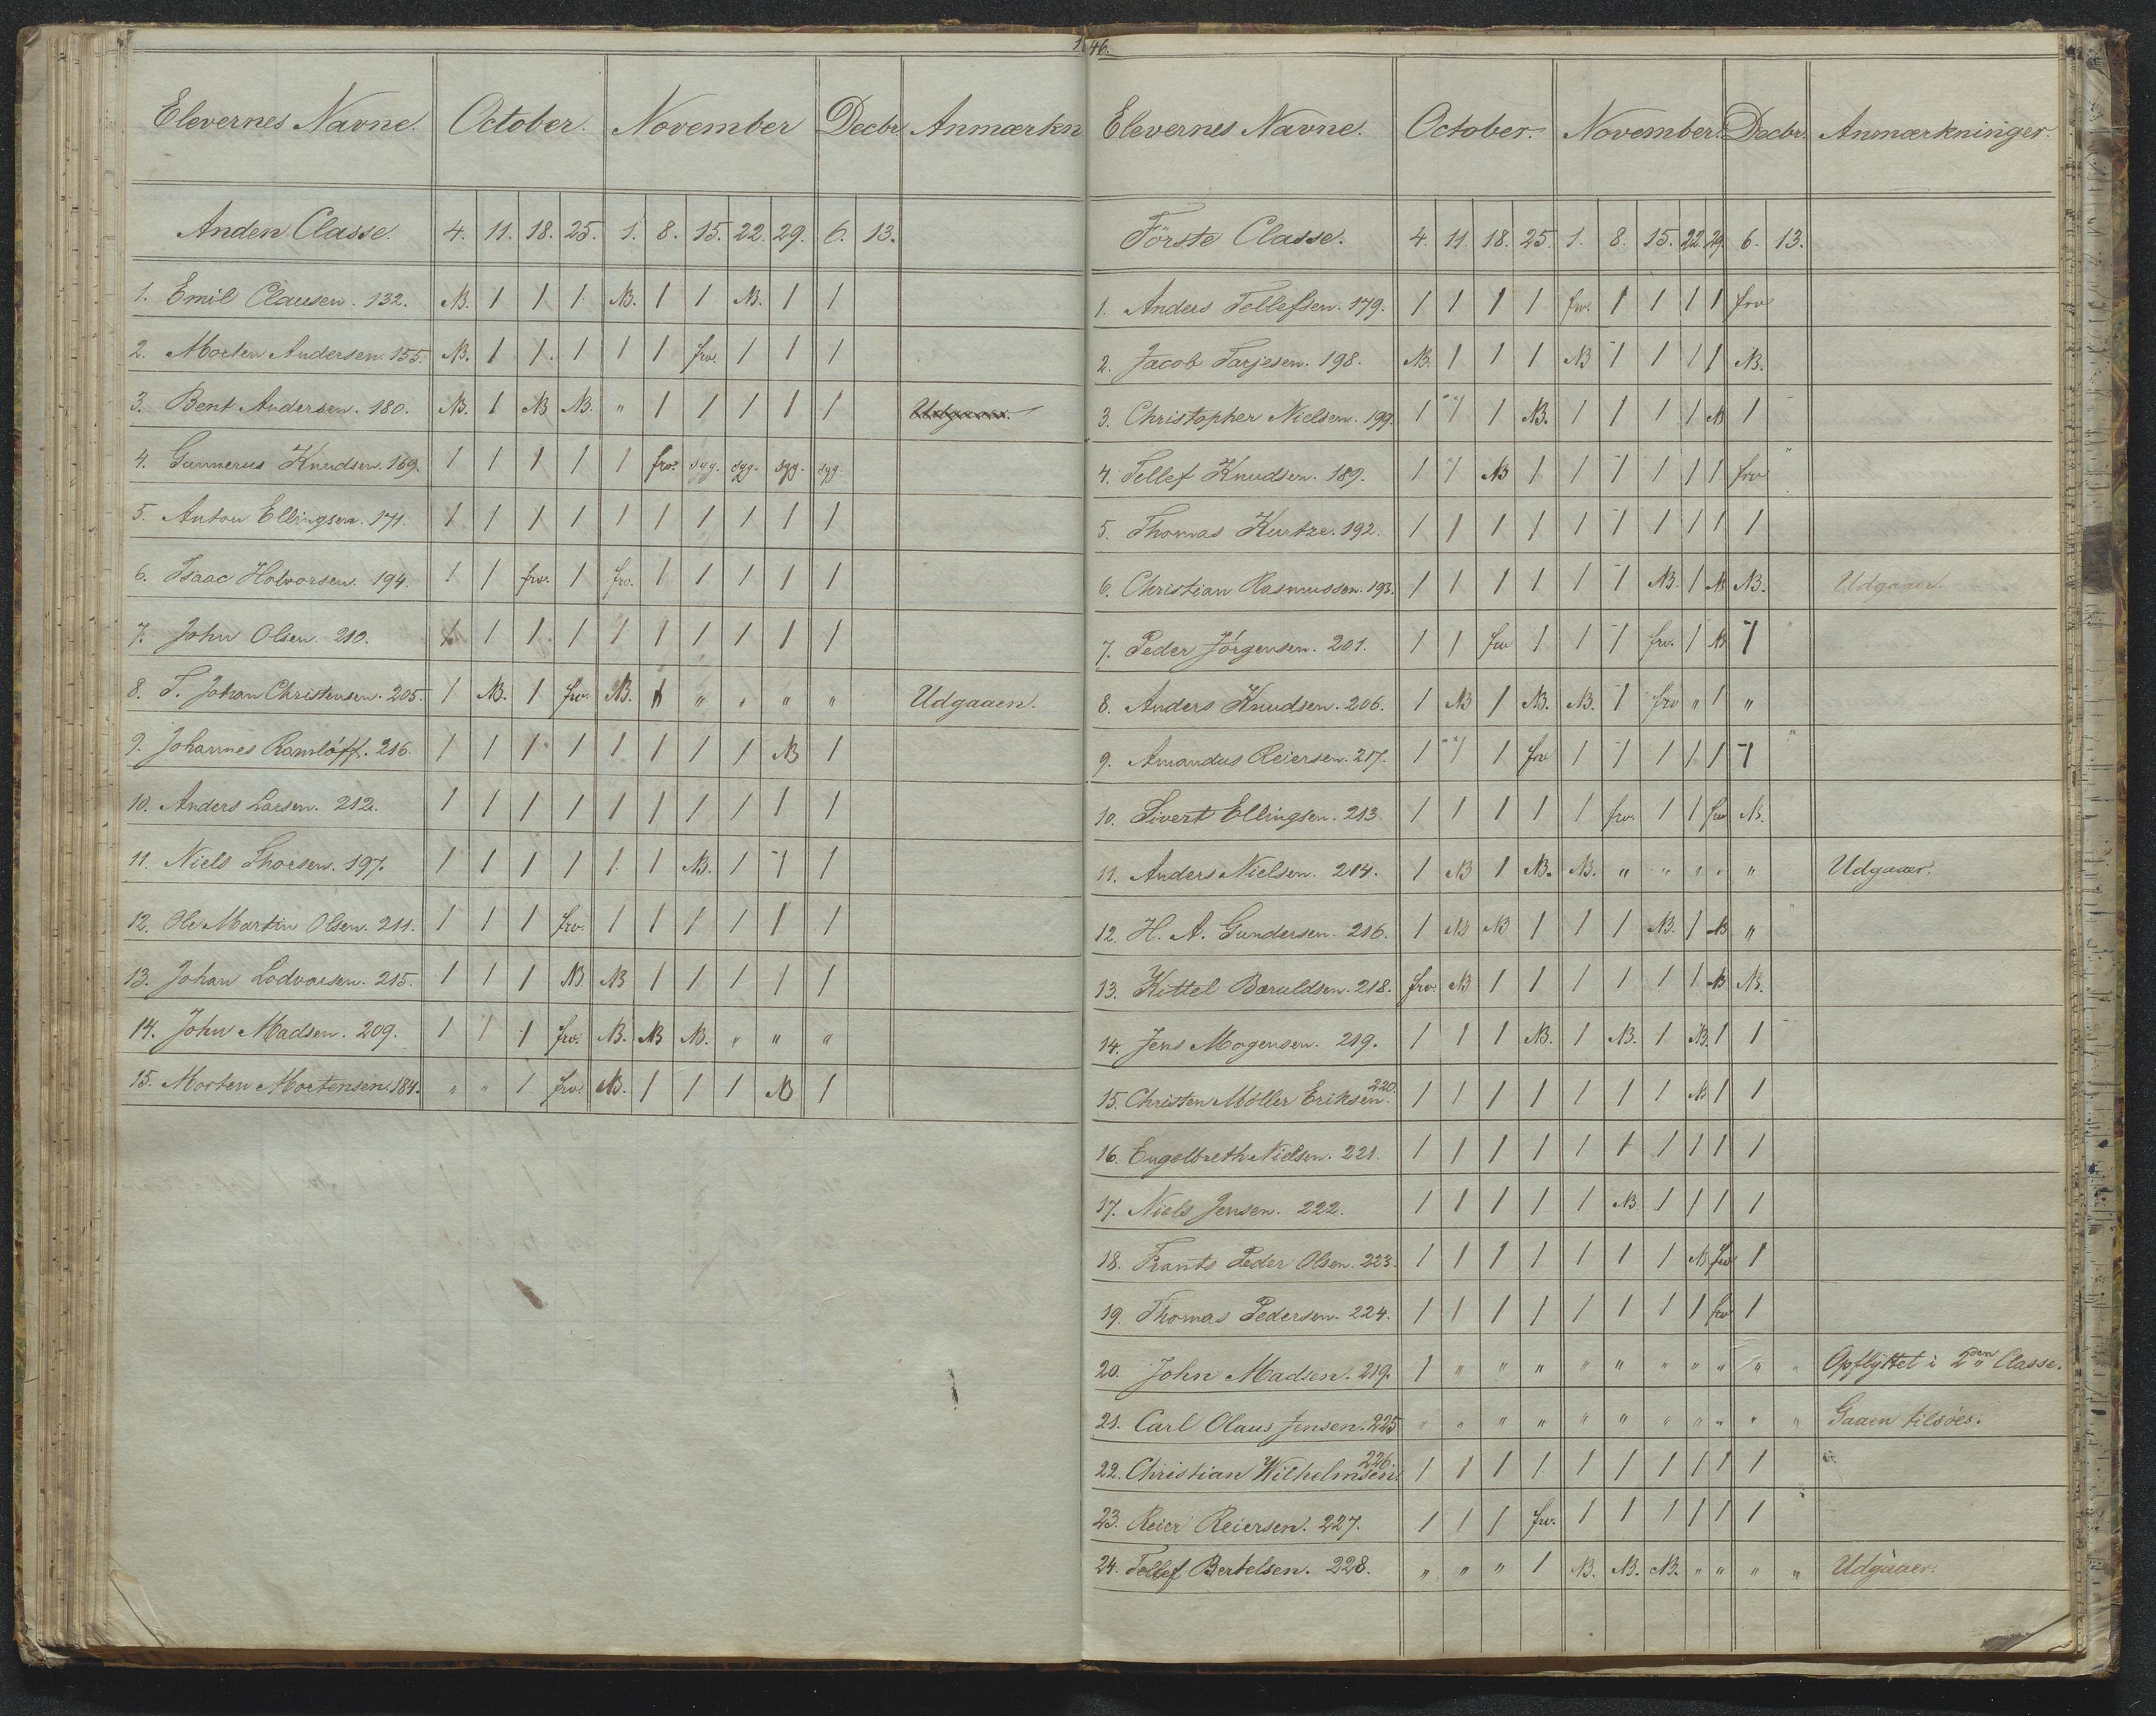 46.
Elevernes Navne. October. November Decbr Anmærkn
Anden Classe. 4. 11. 18. 25. 1. 8. 15. 22. 29. 6. 13.
1. Emil Clausen. 132. NB. 1 1 1 NB. 1 1 NB. 1 1
2. Morten Andersen. 155. NB. 1 1. 1 1 1 frv. 1 1 1
3. Bent Andersen. 180. NB. 1 NB NB. " 1 1 1 1 1
4. Gunnerus Knudsen. 169. 1 1 1 1 1 frv. syg. syg. syg. syg.
5. Anton Ellingsen. 171. 1 1 1 1 1 1 1 1 1 1
6. Isaac Halvorsen. 194. 1 1 frv. 1 frv. 1 1 1 1 1
7. John Olsen. 210. 1 1 1 1 1 1 1 1 1 1
8. T. Johan Christensen. 205. 1 NB. 1 frv NB. 1 " " " " Udgaaen.
9. Johannes Ramlöff. 216. 1 1 1 1 1 1 1 1 NB 1
10. Anders Larsen. 212. 1 1 1 1 1 1 1 1 1 1
11. Niels Thorsen. 197. 1 1 1 1 1 1 NB. 1 1 1
12. Ole Martin Olsen. 211. 1 1 1 frv. 1 1 1 1 1 1
13. Johan Lodvarsen. 215. 1 1 1 NB NB 1 1 1 1 1
14. John Madsen. 209. 1 1 1 frv. NB. NB NB. " " "
15. Morten Mortensen 184. " " 1 frv. NB. 1 1 1 NB 1
Elevernes Navne. October. November. Decbr. Anmærkninger.
Förste Classe. 4. 11. 18. 25. 1. 8. 15. 22. 29. 6. 13.
1. Anders Tellefsen. 179. 1 1 1 1 frv. 1 1 1 1 frv
2. Jacob Tarjesen. 198. NB. 1 1 1 NB 1 1 1 1 NB.
3. Christopher Nielsen. 199. 1 1 1 NB. 1 1 1 1 NB 1
4. Tellef Knudsen. 189. 1 1 NB 1 1 1 1 1 1 frv
5. Thomas Kurtze. 192. 1 1 1 1 1 1 1 1 1 1
6. Christian Rasmussen. 193. 1 1 1 1 1 1 NB. 1 NB NB. Udgaaer.
7. Peder Jörgensen. 201. 1 1 frv 1 1 1 frv. 1 NB 1
8. Anders Knudsen. 206. 1 NB 1 NB. NB. 1 frv " 1 "
9. Amandus Reiersen. 217. 1 1 1 frv 1 1 1 1 1 1
10. Sivert Ellingsen. 213. 1 1 1 1 1 frv. 1 1 frv NB.
11. Anders Nielsen. 214. 1 NB 1 NB. NB. " " " " " Udgaaer.
12. H. A. Gundersen. 216. 1 NB NB 1 1 1 NB. 1 NB "
13. Kittel Baruldsen. 218. frv. NB 1 1 1 1 1 1 NB NB.
14. Jens Mogensen. 219. 1 1 1 NB. 1 NB. 1 NB. 1 1
15. Christen Möller Eriksen. 220. 1 1 1 1 1 1 1 NB 1 1
16. Engelbreth Nielsen. 221. 1 1 1 1 1 1 1 1 1 1
17. Niels Jensen. 222. 1 1 1 1 1 NB. 1 1 1 1
18. Frants Peder Olsen. 223. 1 1 1 1 1 1 1 NB frv 1
19. Thomas Pedersen. 224. 1 1 1 1 1 1 1 1 frv 1
20. John Madsen. 219. 1 " " " " " " " " " " Opflyttet i 2den Classe.
21. Carl Olaus Jensen. 225 " " " " " " " " " " " Gaaen tilsöes.
22. Christian Wilhelmsen 226. 1 1 1 1 1 1 1 1 1 1
23. Reier Reiersen. 227. 1 1 1 frv. 1 1 1 1 1 1
24. Tellef Bertelsen. 228. " " " 1 NB. NB. NB. " " " " Udgaaer.